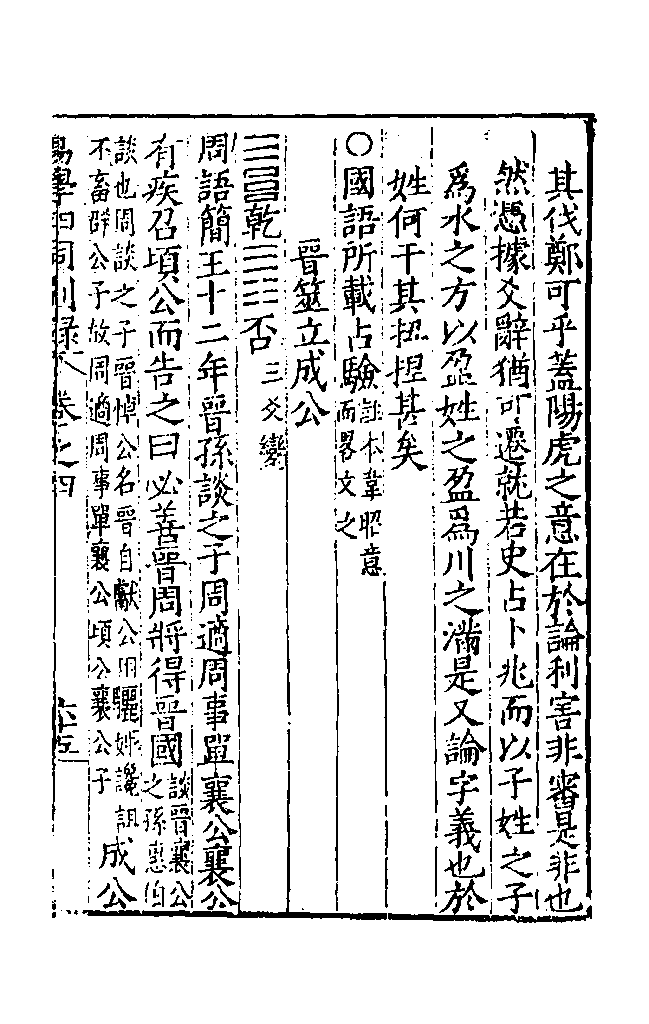 其伐鄭可乎蓋陽虎之意在於論利害非審是非也
然憑據爻辭猶可遷就若史占卜兆而以子姓之子
爲水之方以盈姓之盈爲川之滿是又論字義也於
姓何干其扭捏甚矣
○國語所載占驗註本韋昭意而畧文之
晉筮立成公
乾 否 三爻變
周語簡王十二年晉孫談之子周適周事單襄公襄公
有疾召頃公而告之曰必善晉周將得晉國談晉襄公之孫惠伯
談也周談之子晉悼公名晉自獻公用驪姬讒詛不畜群公子故周適周事單襄公頃公襄公子 成公
易學四同別錄 卷之四 六十五